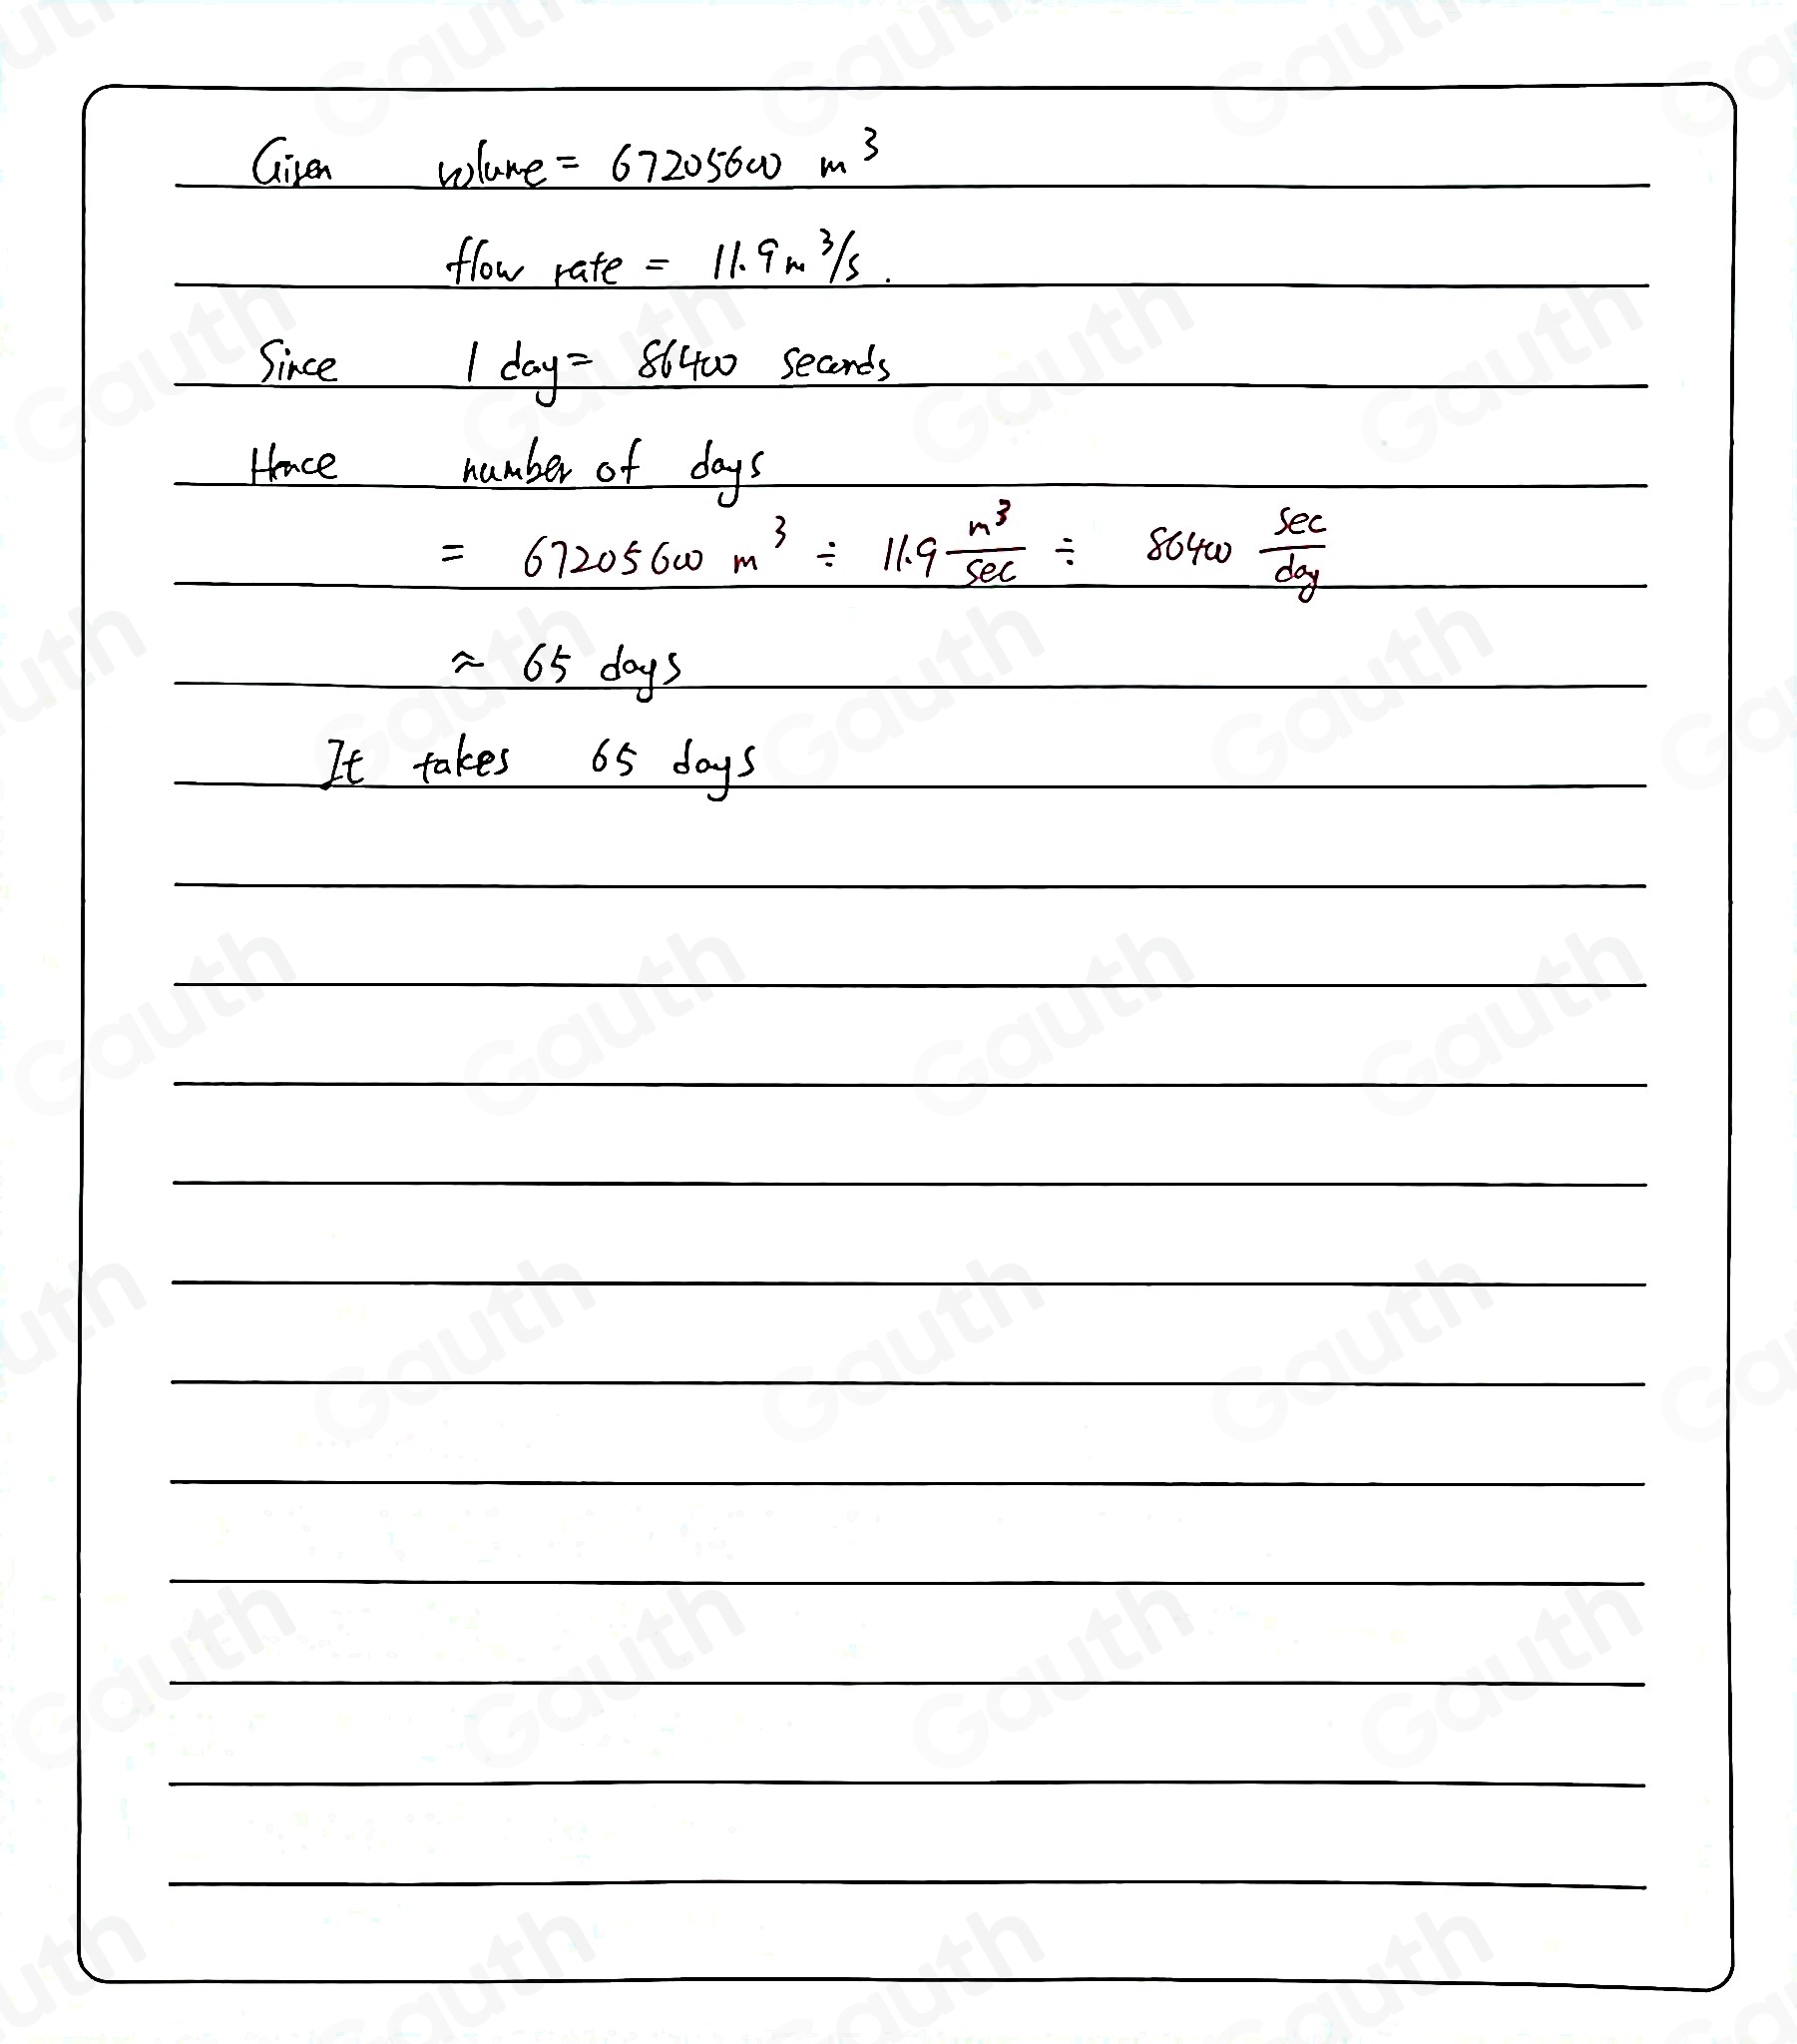 Given volume = 67205600 m³
flow rate = 11.9 m³/s.
Since 1 day = 86400 seconds
Hence number of days
= 67205600 m³ ÷ 11.9 m³/sec ÷ 86400 sec/day
≈ 65 days
It takes 65 days